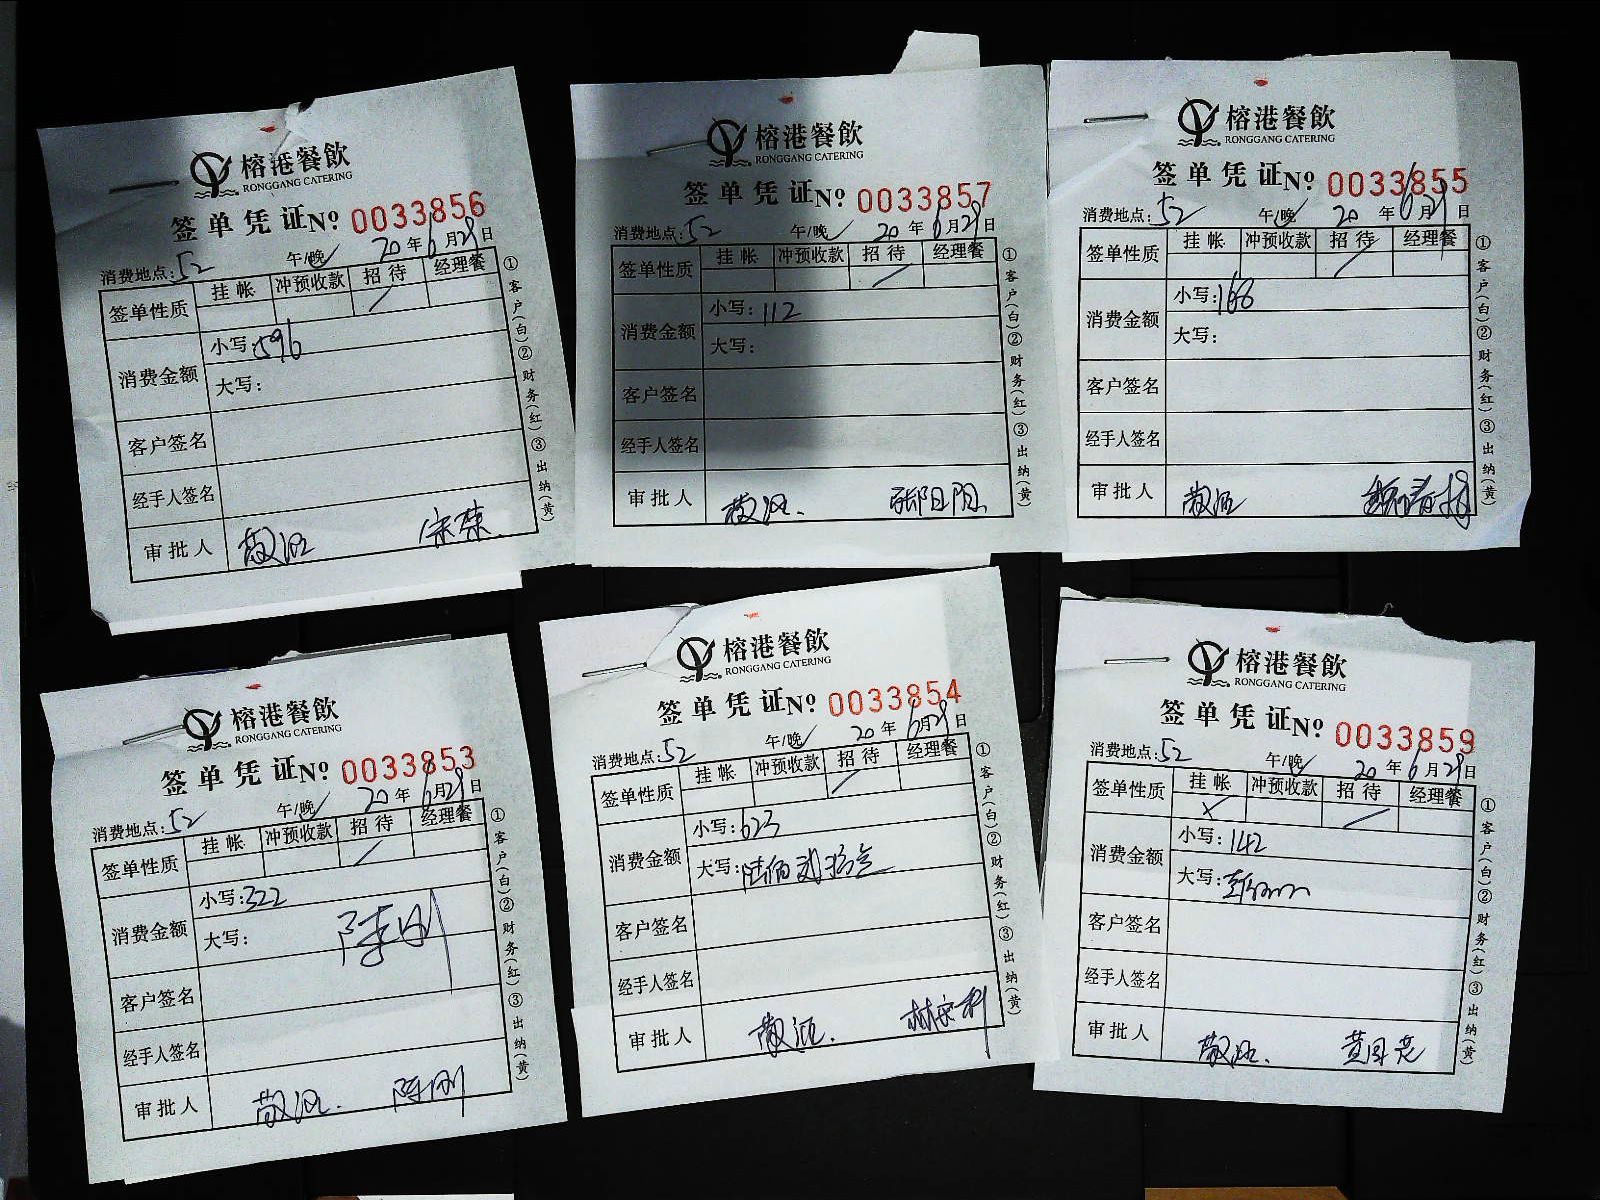 榕港餐飲
RONGGANG CATERING
签单凭证№ 0033856
消费地点:52 午/晚 20年6月29日
签单性质 挂帐 冲预收款 招待 经理餐
消费金额 小写:596
大写:
客户签名
经手人签名
审批人
①客户(白)②财务(红)③出纳(黄)
榕港餐飲
RONGGANG CATERING
签单凭证№ 0033857
消费地点:52 午/晚 20年6月29日
签单性质 挂帐 冲预收款 招待 经理餐
消费金额 小写:112
大写:
客户签名
经手人签名
审批人
①客户(白)②财务(红)③出纳(黄)
榕港餐飲
RONGGANG CATERING
签单凭证№ 0033855
消费地点:52 午/晚 20年6月29日
签单性质 挂帐 冲预收款 招待 经理餐
消费金额 小写:168
大写:
客户签名
经手人签名
审批人
①客户(白)②财务(红)③出纳(黄)
榕港餐飲
RONGGANG CATERING
签单凭证№ 0033853
消费地点:52 午/晚 20年6月29日
签单性质 挂帐 冲预收款 招待 经理餐
消费金额 小写:322
大写: 陈刚
客户签名
经手人签名
审批人 陈刚
①客户(白)②财务(红)③出纳(黄)
榕港餐飲
RONGGANG CATERING
签单凭证№ 0033854
消费地点:52 午/晚 20年6月29日
签单性质 挂帐 冲预收款 招待 经理餐
消费金额 小写:623
大写:陆佰贰拾叁
客户签名
经手人签名
审批人
①客户(白)②财务(红)③出纳(黄)
榕港餐飲
RONGGANG CATERING
签单凭证№ 0033859
消费地点:52 午/晚 20年6月29日
签单性质 挂帐 冲预收款 招待 经理餐
消费金额 小写:142
大写:
客户签名
经手人签名
审批人
①客户(白)②财务(红)③出纳(黄)